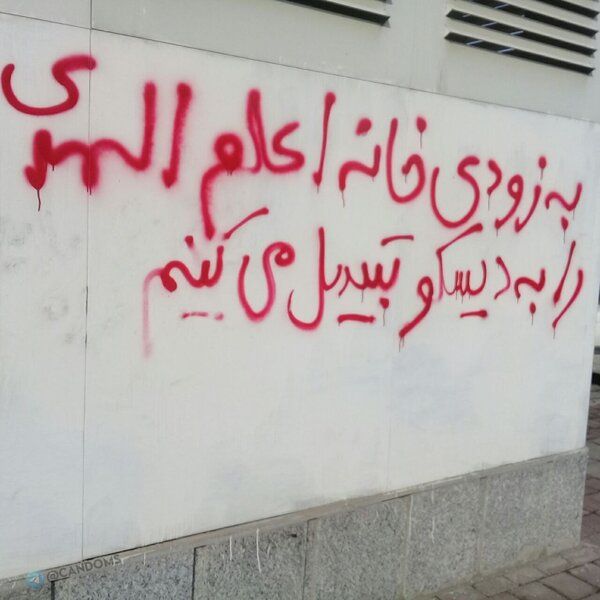 به زودی خانه اعلم الهدی
را به دیسکو تبدیل می کنیم
@CANDOMS